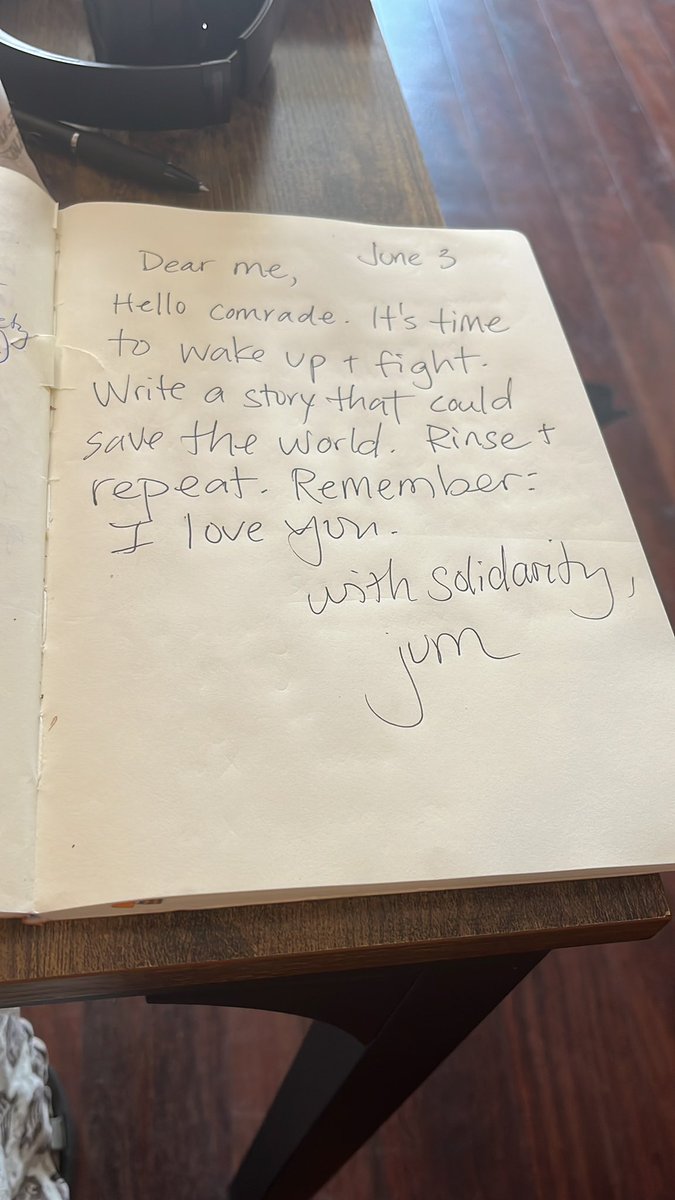 Dear me, June 3
Hello comrade. It's time
to wake up + fight.
Write a story that could
save the world. Rinse +
repeat. Remember:
I love you.
with solidarity,
jum